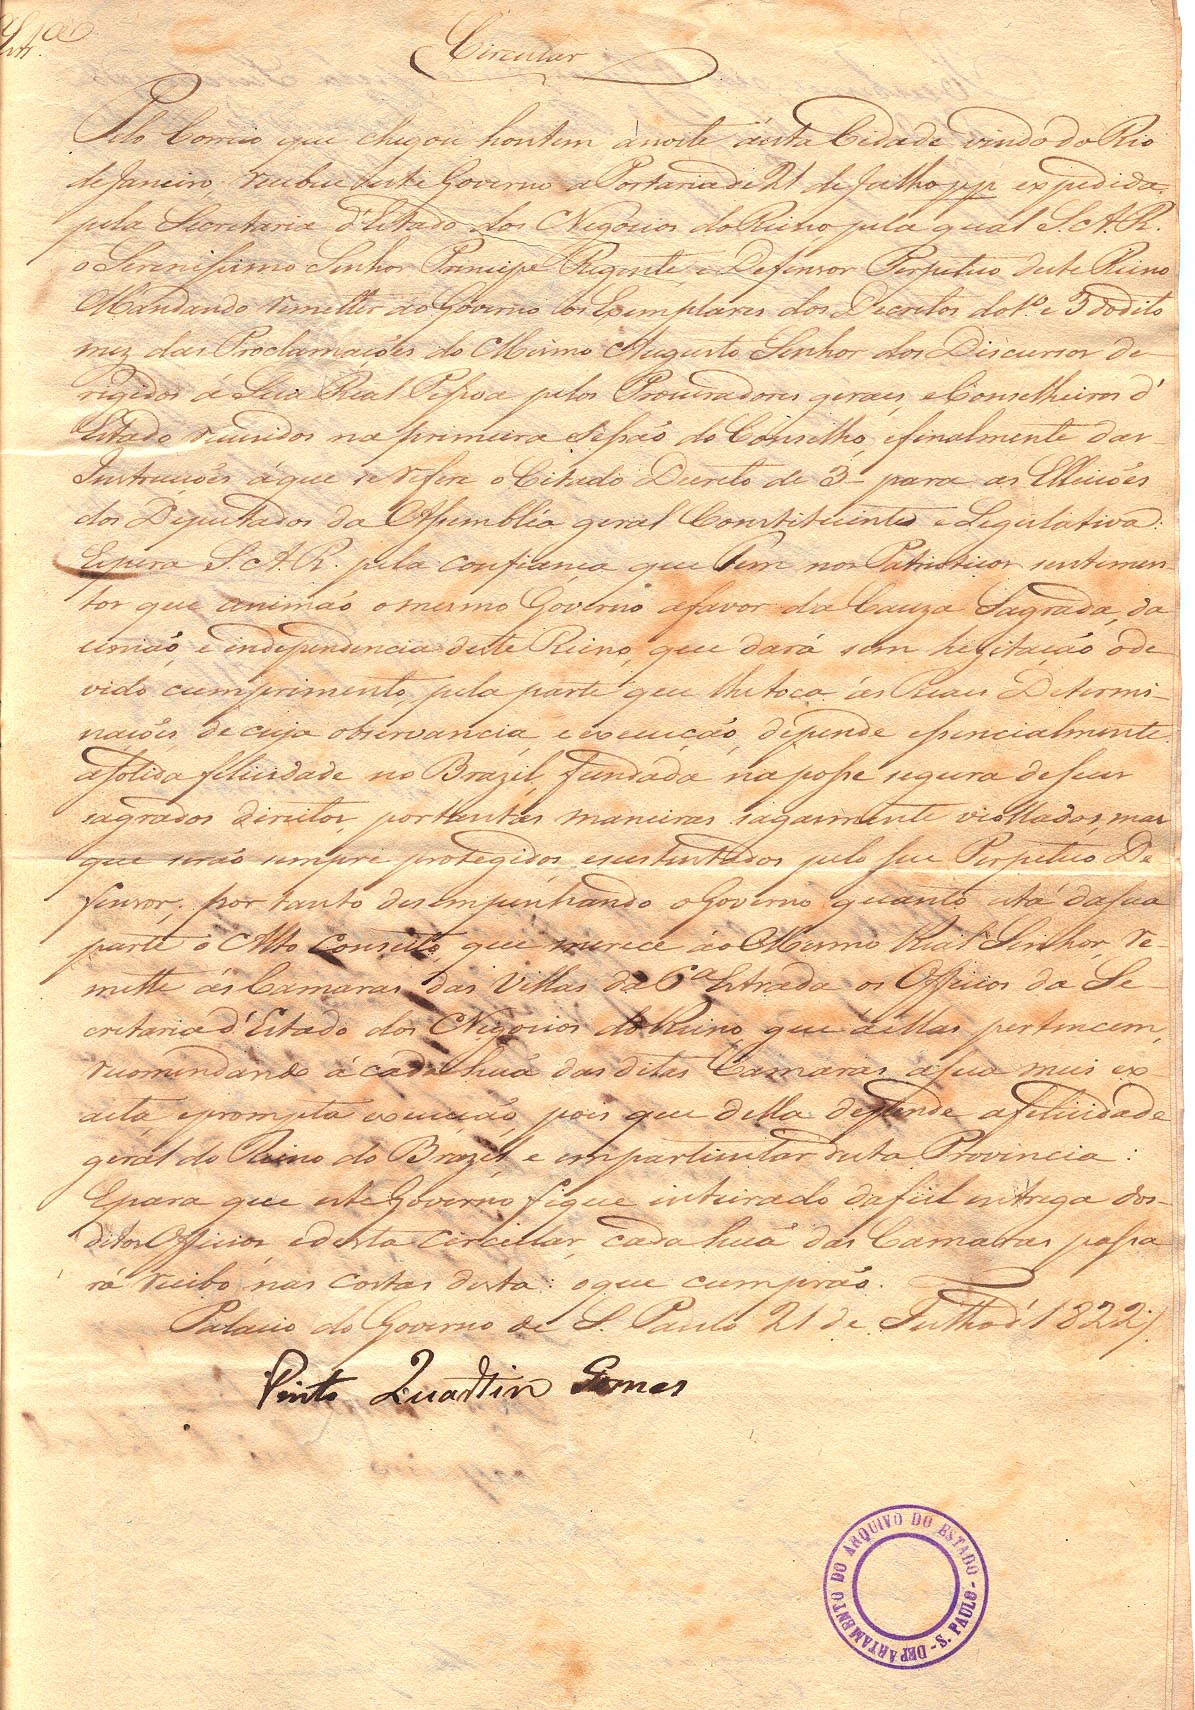 Circular
Pelo Correio que chegou hontem ànoite àesta Cidade vindo do Rio
de Janeiro recebeu este Governo a Portaria de 21 de Julho pp expedida
pela Secretaria d'Estado dos Negocios do Reino, pela qual S. A. R.
o Serenissimo Senhor Principe Regente, e Defensor Perpetuo deste Reino
Mandando remetter ao Governo os Exemplares dos Decretos do 1º e 3 do dito
mez das Proclamaçoẽs do Mesmo Augusto Senhor dos Discursos de-
rigidos á Sua Real Pessoa pelos Procuradores geraes, e Conselheiros d'
Estado reunidos na primeira Sessaõ do Conselho, efinalmente das
Instruçoẽs áque se refere o Citado Decreto de 3 - para as Elleiçoẽs
dos Deputados da Assemblea geral Constituente e Legislativa:
Espera S. A. R. pela confiança que Tem nos Patrioticos sentimen-
tos que animaõ o mesmo Governo afavor da Cauza Sagrada, da
uniaõ, e independencia deste Reino, que dará sem hezitaçaõ ode-
vido cumprimento, pela parte que lhe toca ás Reaes Determi-
naçoẽs, de cuja observancia, e execuçaõ, depende essencialmente
asolida felicidade no Brazil, fundada na posse segura deseus
sagrados direitos, portantas maneiras sagasmente viollados, mas
que seraõ sempre protegidos, esustentados pelo seu Perpetuo De-
fensor; por tanto desempenhando o Governo quanto está dasua
parte o Alto Conseito, que merece áo Mesmo Real Senhor, re-
mette ás Camaras das Villas da 6ª Estrada os Officios da Se-
cretaria d'Estado dos Negocios do Reino, que áellas pertencem,
recomendando á cada huã das ditas Camaras, asua mais ex-
acta, eprompta execuçaõ, pois que della depende afelicidade
geral do Reino do Brazil, e emparticular desta Provincia:
Epara que este Governo fique inteirado dafiel entrega dos-
ditos Officios, edesta circullar, cada huã das Camaras passa
rá recibo nas costas desta: oque cumpraõ.
Palacio do Governo de S. Paulo 21 de Julho d'1822
Pinto Quartin Gomes
DEPARTAMENTO DO ARQUIVO DO ESTADO - S. PAULO -